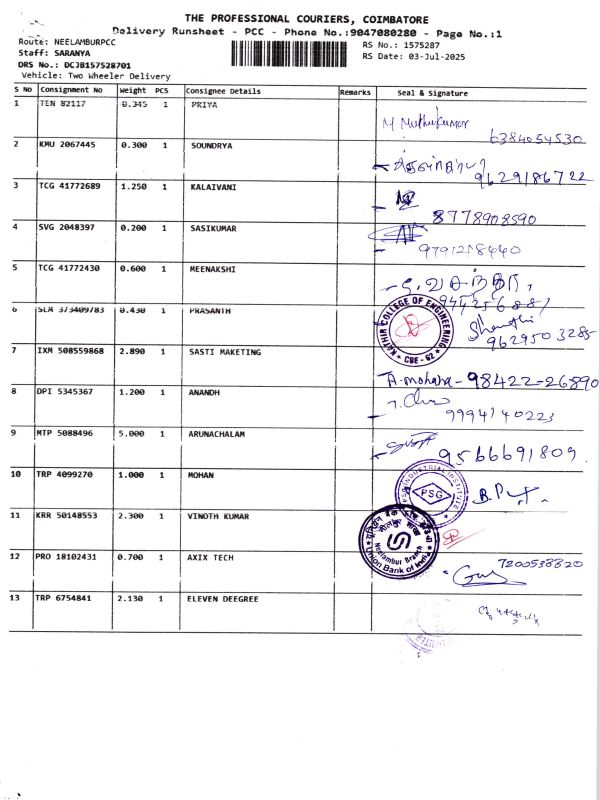 THE PROFESSIONAL COURIERS, COIMBATORE
Delivery Runsheet - PCC - Phone No.:9047080280 - Page No.:1
Route: NEELAMBURPCC
RS No.: 1575287
Staff: SARANYA
RS Date: 03-Jul-2025
DRS No.: DCJB157528701
Vehicle: Two Wheeler Delivery
S No Consignment No Weight PCS Consignee Details Remarks Seal & Signature
1 TEN 82117 0.345 1 PRIYA
M Muthukumar
6384054530
2 KMU 2067445 0.300 1 SOUNDRYA
9629186722
3 TCG 41772689 1.250 1 KALAIVANI
8778908590
4 SVG 2048397 0.200 1 SASIKUMAR
5 TCG 41772430 0.600 1 MEENAKSHI
6 SLM 373409783 0.430 1 PRASANTH
KATHIR COLLEGE OF ENGINEERING
CBE - 62
Shanthi
9629503285
7 IXM 508559868 2.890 1 SASTI MAKETING
A.mohana - 98422-26890
8 DPI 5345367 1.200 1 ANANDH
9994140223
9 MTP 5088496 5.000 1 ARUNACHALAM
9566691809.
10 TRP 4099270 1.000 1 MOHAN
PSG INDUSTRIAL INSTITUTE
PSG
11 KRR 50148553 2.300 1 VINOTH KUMAR
Neelambur Branch
Union Bank of India
12 PRO 18102431 0.700 1 AXIX TECH
7200538820
13 TRP 6754841 2.130 1 ELEVEN DEEGREE